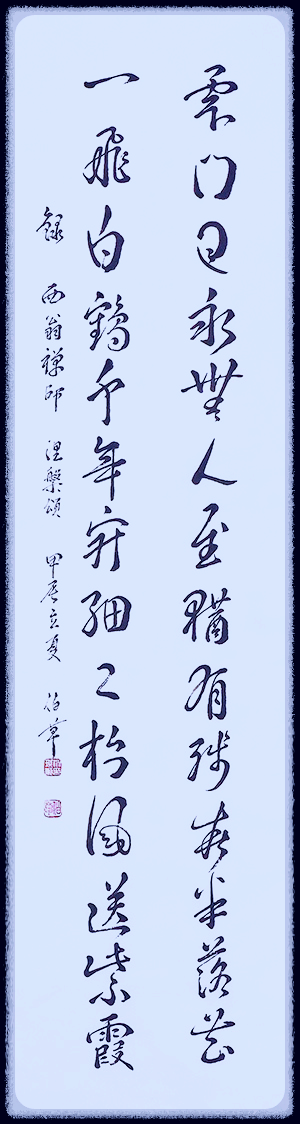 雲门日永無人至猶有残春半落花
一飛白鶴千年寂細々松風送紫霞
錄 西翁禪師 涅槃頌 甲辰立夏